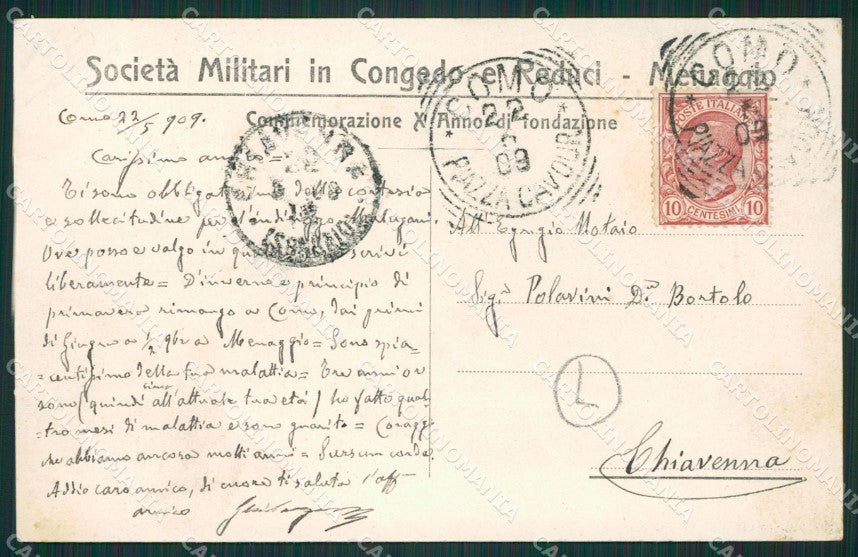 Società Militari in Congedo e Reduci - Menaggio
Commemorazione X Anno di fondazione
COMO
22
5
09
PIAZZA CAVOUR
COMO
09
PIAZZA
POSTE ITALIANE
10 CENTESIMI 10
Como 22/5 909.
Carissimo
Ti sono della cortesia
e sollecitudine per l'indirizzo Malagani.
Ove posso e valgo in scrivi
liberamente = D'inverno e principio di
primavera rimango a Como, dai primi
di Giugno a ½ 9bre a Menaggio = Sono spia-
=centissimo della tua malattia = Tre anni or
sono (quindi all'attuale tua età) ho fatto quat-
=tro mesi di malattia e sono guarito = Coragg
che abbiamo ancora molti anni = Sursum corda
Addio caro amico, di cuore ti saluta l'aff
amico
All'Egregio Notaio
Sigr Polavini Dn Bortolo
L
Chiavenna
CARTOLINOMANIA